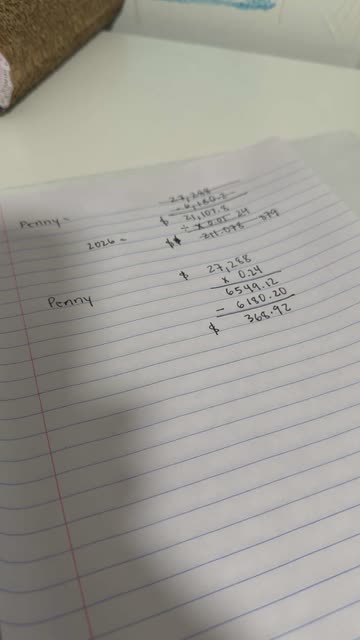 27,288
- 6,180.2
Penny = $ 21,107.8
÷ x 0.01 24
2026 = $ 211.078 379
$ 27,288
Penny x 0.24
6549.12
- 6180.20
$ 368.92